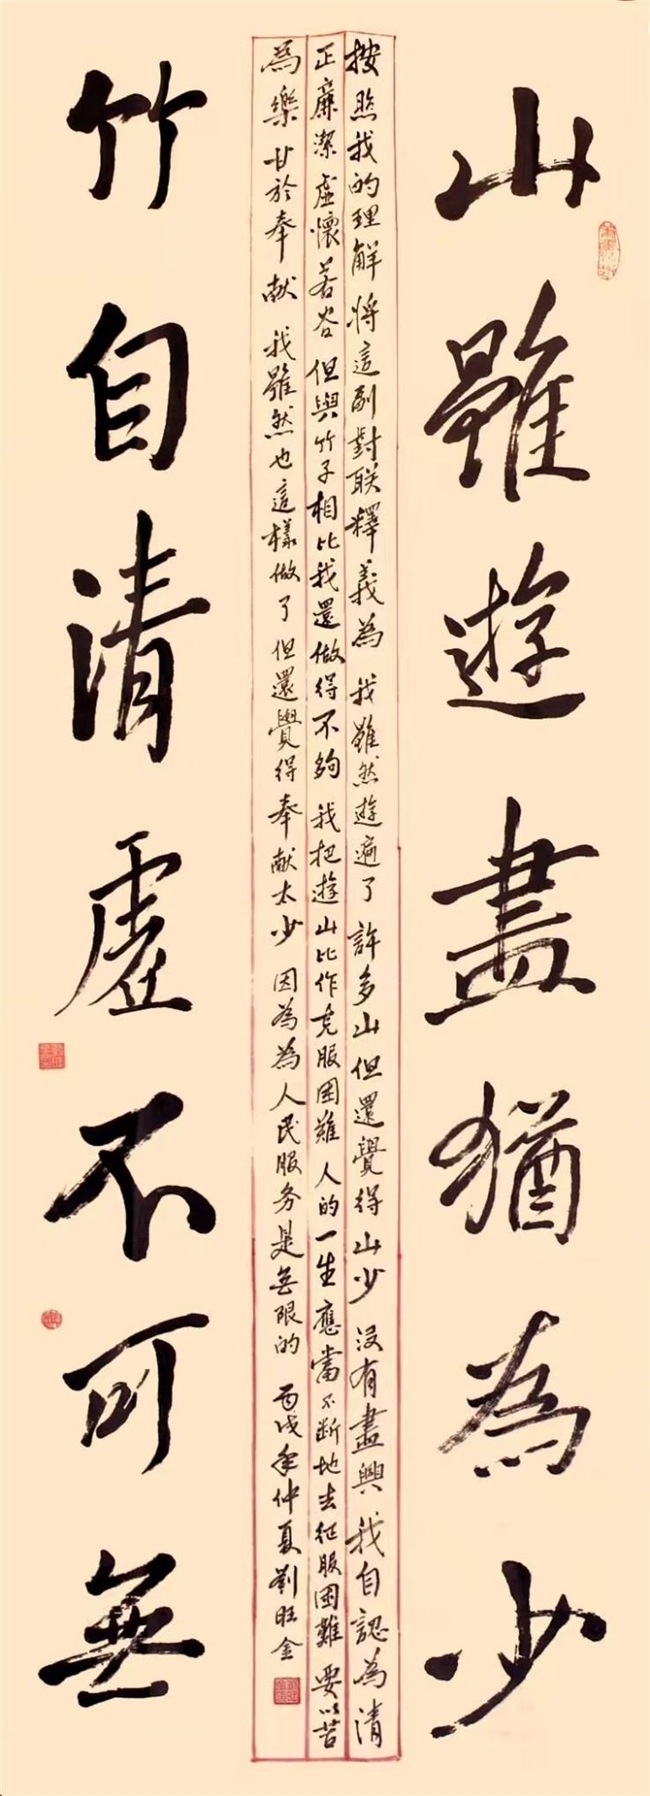 山雖遊盡猶為少
按照我的理解將這副對联釋義為 我雖然遊遍了 許多山但還覺得山少 没有盡興 我自認為清
正廉潔虚懷若谷 但與竹子相比我還做得不夠 我把遊山比作克服困難 人的一生應當不断地去征服困難 要以苦
為樂 甘於奉献 我雖然也這樣做了但還覺得奉献太少 因為為人民服务是無限的 丙戌年仲夏劉旺金
竹自清虚不可無